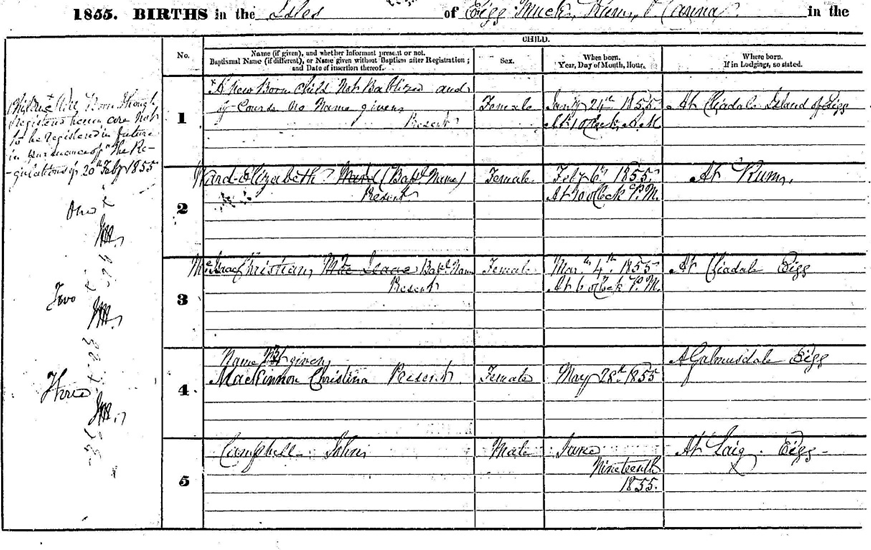 1855. BIRTHS in the Isles of Eigg Muck, Rum, & Canna. in the
CHILD.
No.
Name (if given), and whether Informant present or not.
Baptismal Name (if different), or Name given without Baptism after Registration;
and Date of insertion thereof.
Sex.
When born.
Year, Day of Month, Hour.
Where born.
If in Lodgings, so stated.
1
A New Born Child Not Baptized and
of Course No Name given
Present
Female
Jany 24th 1855
At Cliadale Island of Eigg
registers herein are not
to be registered in future
in pursuance of The Re-
-gulations of 20th Feby 1855
One
2
Ward Elizabeth Ward (Bapl. Name)
Present
Female
Feby 6th 1855
P.M.
At Rum,
Two
3
Christian, Mc Isaac Bapl. Name
Present
Female
Mar. 4th 1855
P.M.
At Cliadale Eigg
Three
4
Name Not given
MacKinnon Christina Present
Female
May 28th 1855
Galmusdale Eigg
5
Campbell John
Male
June
Nineteenth
1855.
At Laig. Eigg